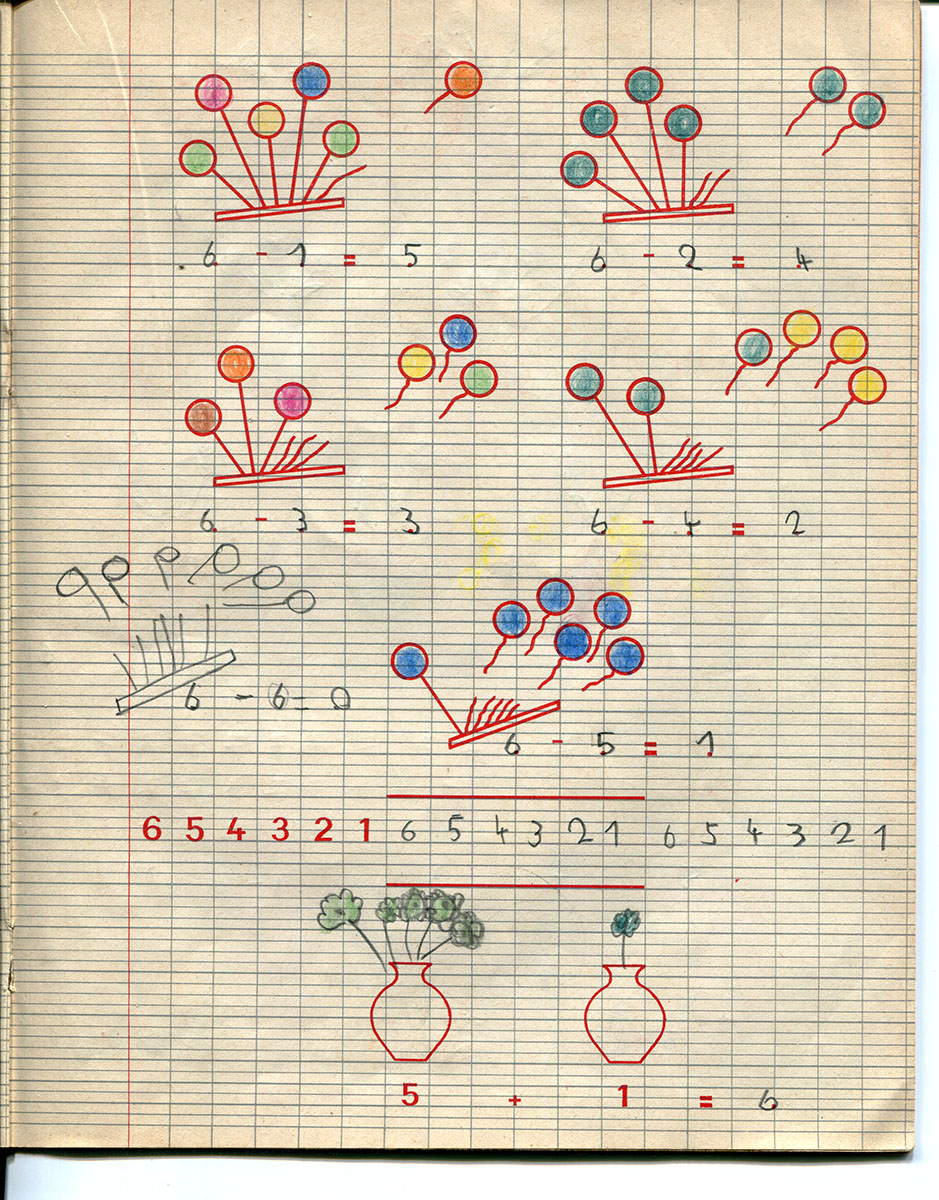 6 - 1 = 5
6 - 2 = 4
6 - 3 = 3
6 - 4 = 2
6 - 6 = 0
6 - 5 = 1
6 5 4 3 2 1 6 5 4 3 2 1 6 5 4 3 2 1
5 + 1 = 6